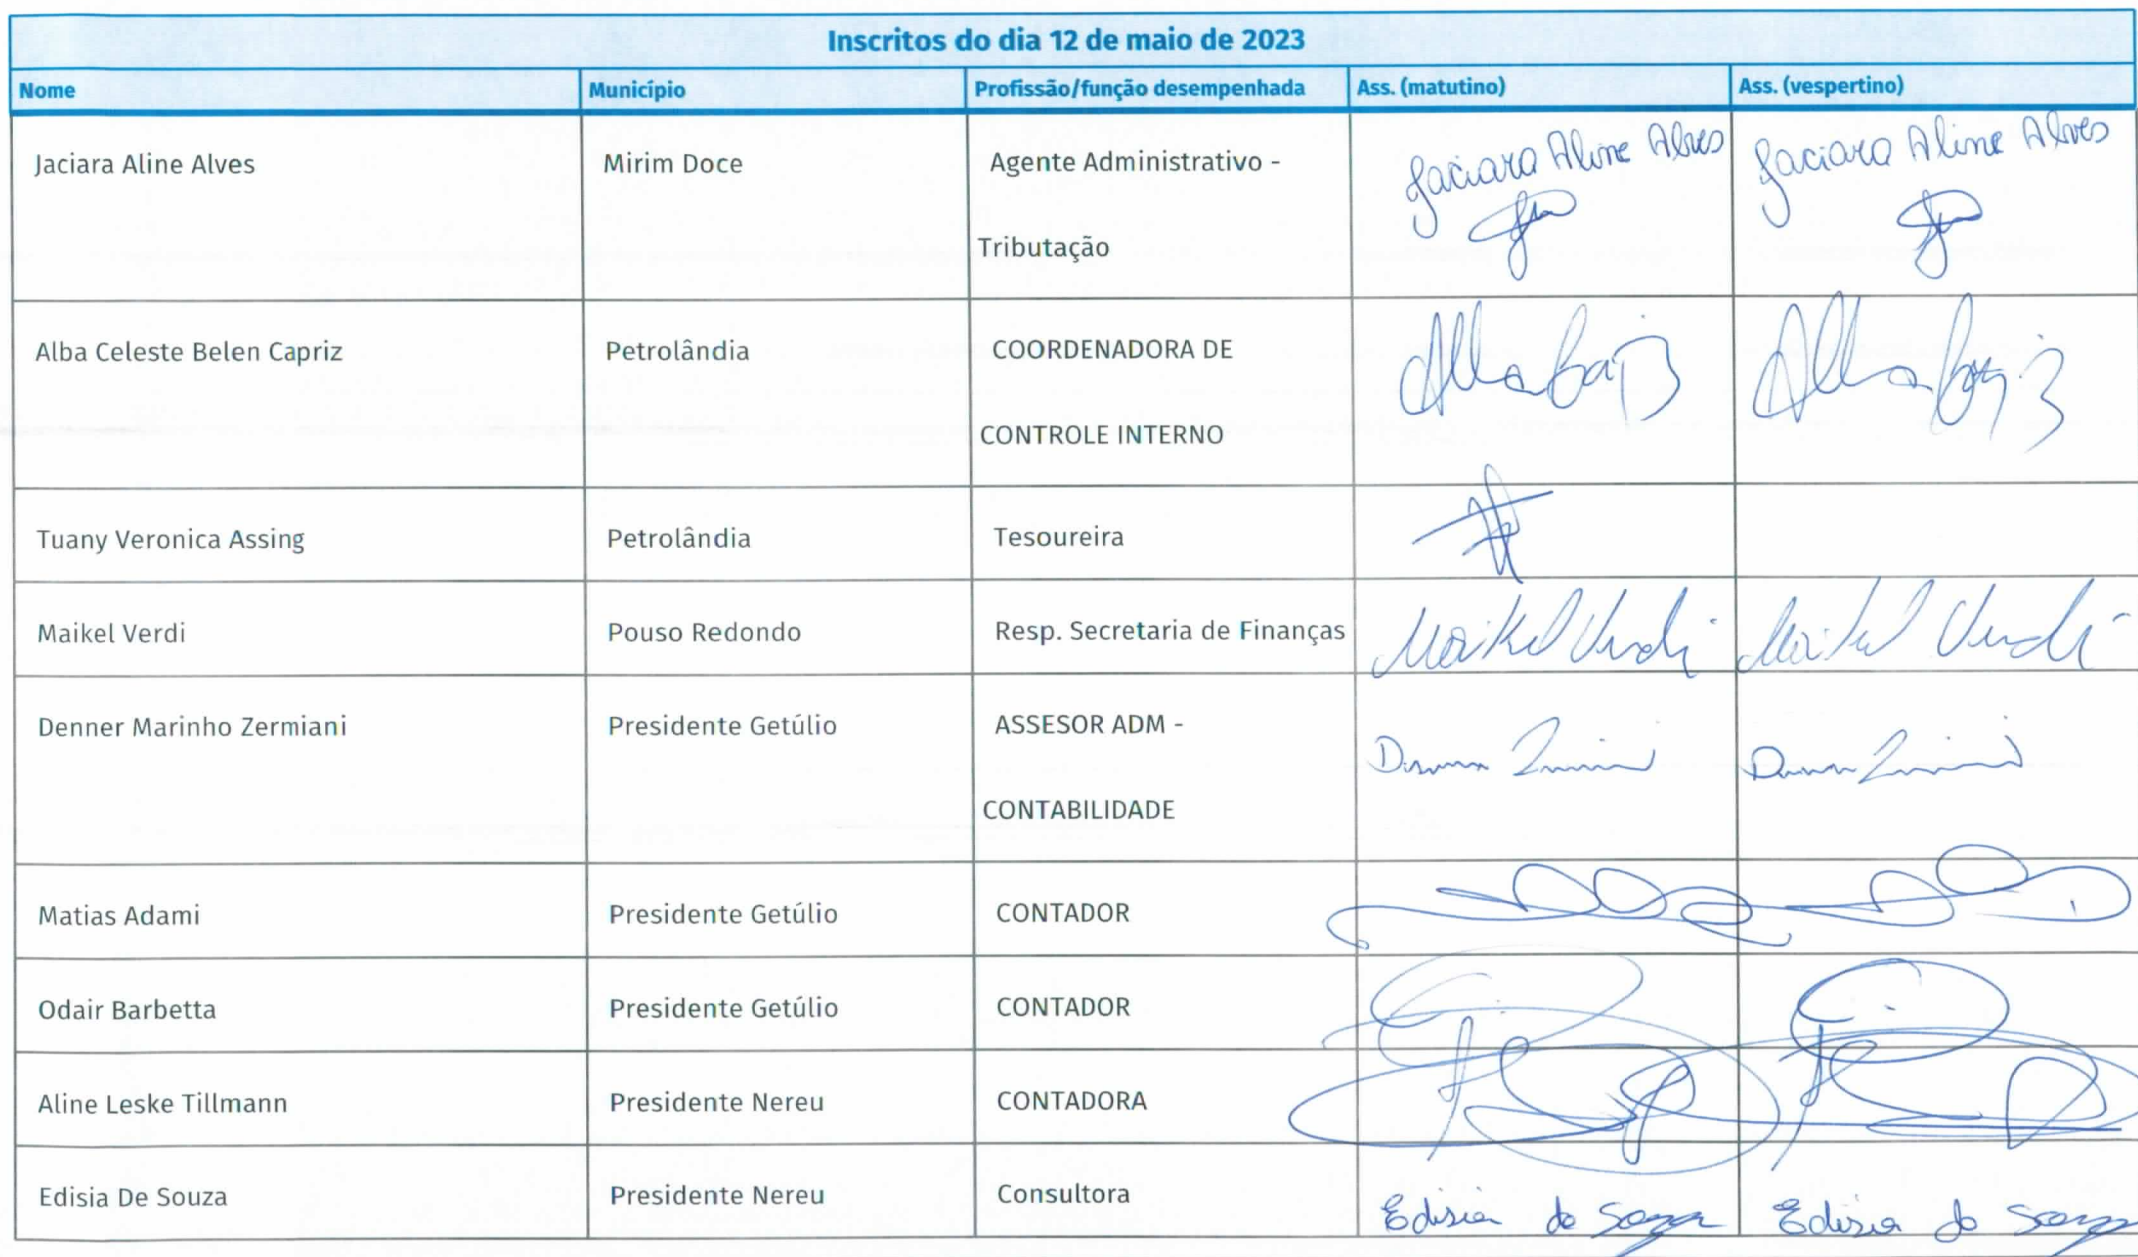 Inscritos do dia 12 de maio de 2023
Nome Município Profissão/função desempenhada Ass. (matutino) Ass. (vespertino)
Jaciara Aline Alves Mirim Doce Agente Administrativo - Jaciara Aline Alves Jaciara Aline Alves
Tributação
Alba Celeste Belen Capriz Petrolândia COORDENADORA DE
CONTROLE INTERNO
Tuany Veronica Assing Petrolândia Tesoureira
Maikel Verdi Pouso Redondo Resp. Secretaria de Finanças Maikel Verdi Maikel Verdi
Denner Marinho Zermiani Presidente Getúlio ASSESOR ADM -
CONTABILIDADE
Matias Adami Presidente Getúlio CONTADOR
Odair Barbetta Presidente Getúlio CONTADOR
Aline Leske Tillmann Presidente Nereu CONTADORA
Edisia De Souza Presidente Nereu Consultora Edisia de Souza Edisia de Souza